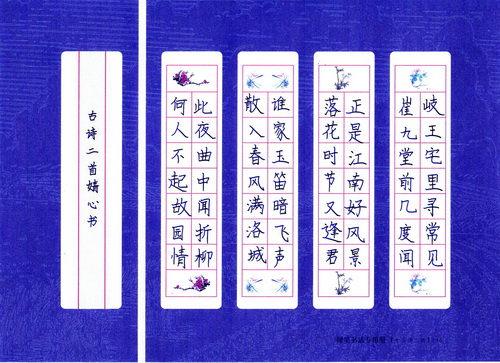 岐王宅里寻常见
崔九堂前几度闻
正是江南好风景
落花时节又逢君
谁家玉笛暗飞声
散入春风满洛城
此夜曲中闻折柳
何人不起故园情
古诗二首婧心书